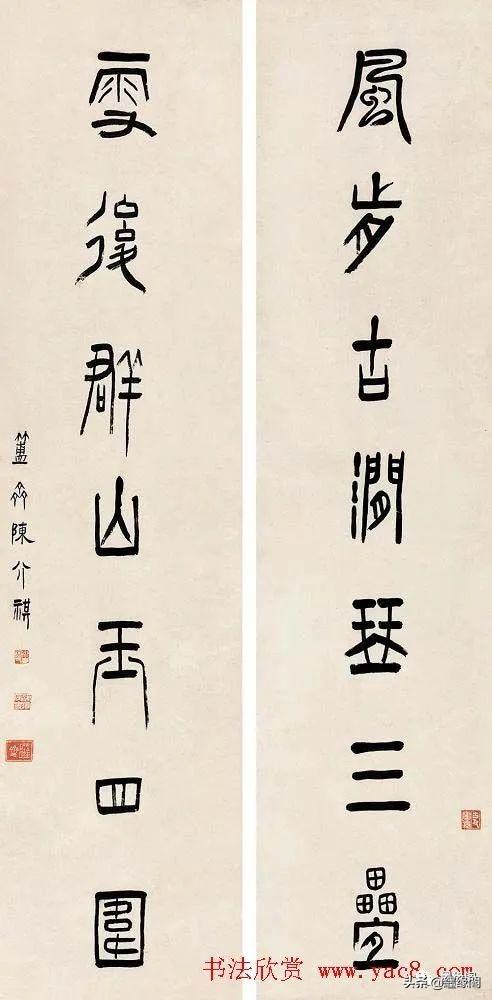 風步古澗琴三疊
雪後群山玉四圍
簠齋陳介祺
书法欣赏 www.yac8.com
头条